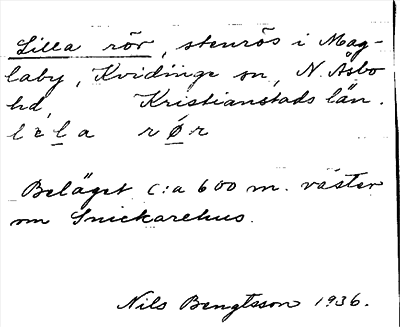 Lilla rör, stenrös i Mag-
laby, Kvidinge sn, N. Åsbo
hd, Kristianstads län.
lela rør
Beläget c:a 600 m. väster
om Snickarehus.
Nils Bengtsson 1936.